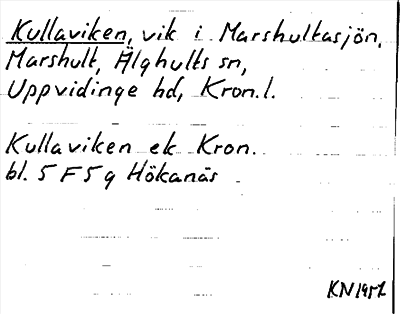 Kullaviken, vik i Marshultasjön,
Marshult, Älghults sn,
Uppvidinge hd, Kron.l.
Kullaviken ek Kron.
bl. 5 F 5 g Hökanäs